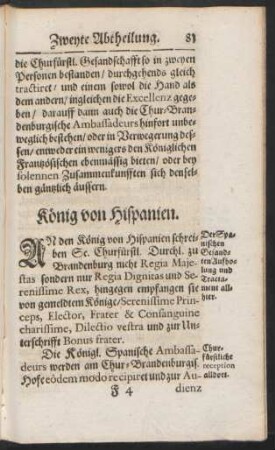 Zweyte Abtheilung. 81
die Churfürstl. Gesandschafft so in zweyen
Personen bestanden / durchgehends gleich
tractiret / und einem sowol die Hand als
dem andern / ingleichen die Excellenz gege-
ben / darauff dann auch die Chur-Bran-
denburgische Ambassadeurs hinfort unbe-
weglich bestehen / oder in Verwegerung des-
sen / entweder ein wenigers den Königlichen
Französischen ebenmässig bieten / oder bey
solennen Zusammenkunfften sich densel-
ben gäntzlich äussern.
König von Hispanien.
AN den König von Hispanien schrei-
ben Se. Churfürstl. Durchl. zu
Brandenburg nicht Regia Maje-
stas sondern nur Regia Dignitas und Se-
renissime Rex, hingegen empfangen sie
von gemeldtem Könige / Serenissime Prin-
ceps, Elector, Frater & Consanguine
charissime, Dilectio vestra und zur Un-
terschrifft Bonus frater.
Der Spa-
nischen
Gesande-
ten Auffho-
lung und
Tracta-
ment all-
hier.
Die Königl. Spanische Ambassa-
deurs werden am Chur-Brandenburgis.
Hofe eôdem modo recipiret und zur Au-
Chur-
fürstliche
reception
alldort.
F 4 dienz